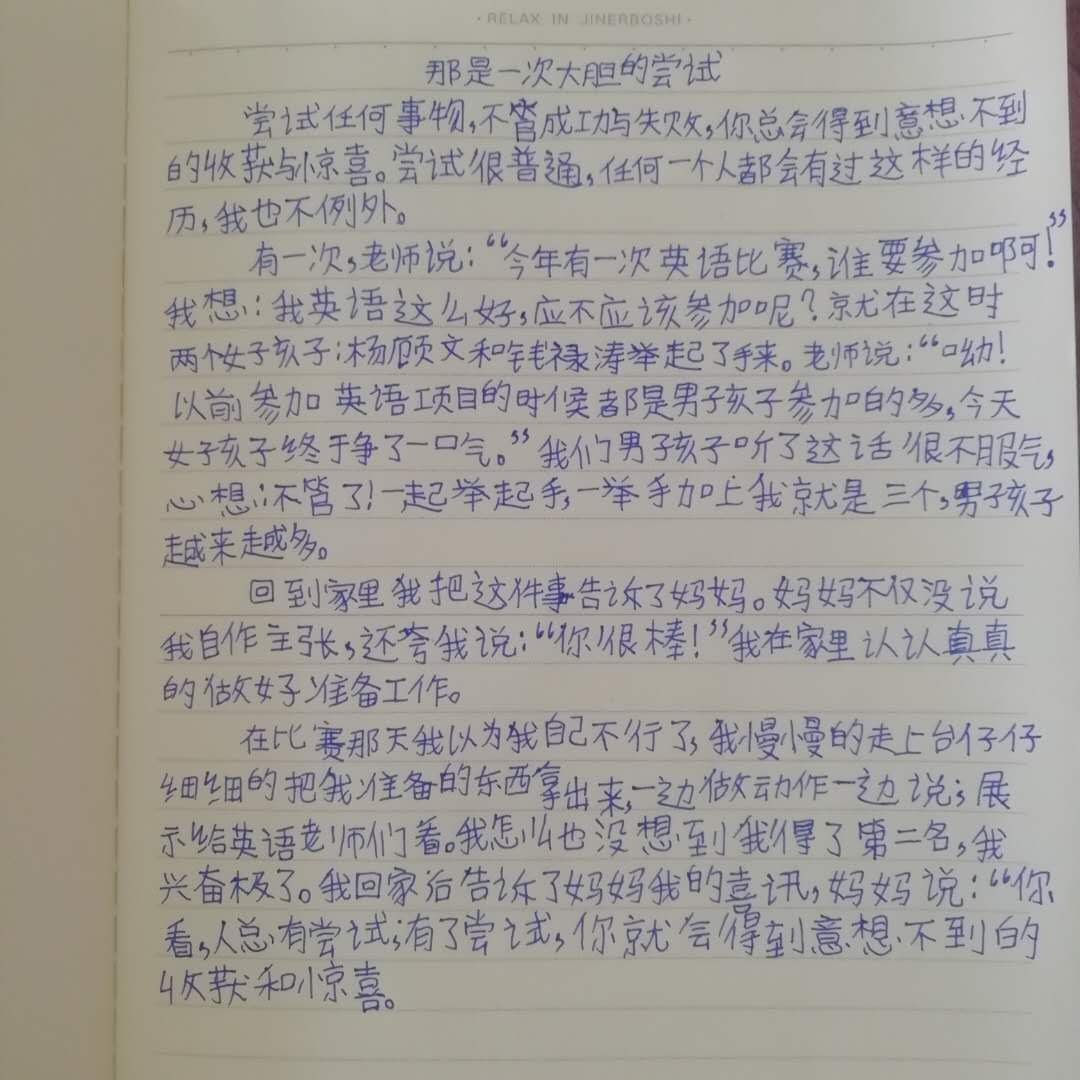 · RELAX IN JINERBOSHI ·
那是一次大胆的尝试
尝试任何事物,不管成功与失败,你总会得到意想不到
的收获与惊喜。尝试很普通,任何一个人都会有过这样的经
历,我也不例外。
有一次,老师说:“今年有一次英语比赛,谁要参加啊!”
我想:我英语这么好,应不应该参加呢?就在这时
两个女孩子:杨顾文和钱禄涛举起了手来。老师说:“呦!
以前参加英语项目的时候都是男孩子参加的多,今天
女孩子终于争了一口气。”我们男孩子听了这话很不服气,
心想:不管了!一起举起手,一举手加上我就是三个,男孩子
越来越多。
回到家里我把这件事告诉了妈妈。妈妈不仅没说
我自作主张,还夸我说:“你很棒!”我在家里认认真真
的做好准备工作。
在比赛那天我以为我自己不行了,我慢慢的走上台仔仔
细细的把我准备的东西拿出来,一边做动作一边说;展
示给英语老师们看。我怎么也没想到我得了第二名,我
兴奋极了。我回家后告诉了妈妈我的喜讯,妈妈说:“你
看,人总有尝试;有了尝试,你就会得到意想不到的
收获和惊喜。